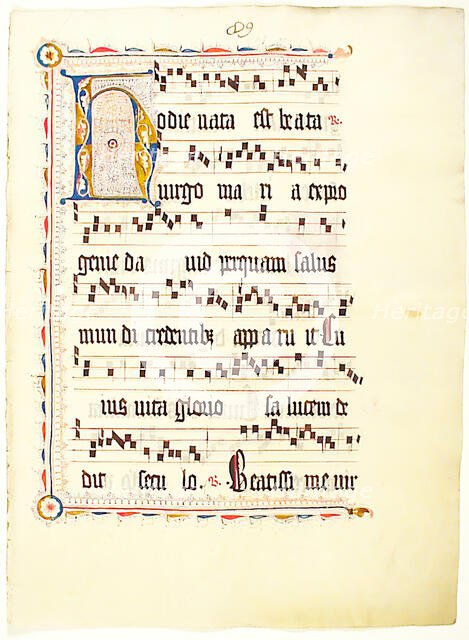 Hodie nata est beata ℟.
uirgo ma ri a ex pro
genie da uid per quam salus
mun di credentibꝫ app a ru it Cu
ius uita glorio sa lucem de
dit secu lo. ℟. Beatissi me uir
Heritage
Heritage